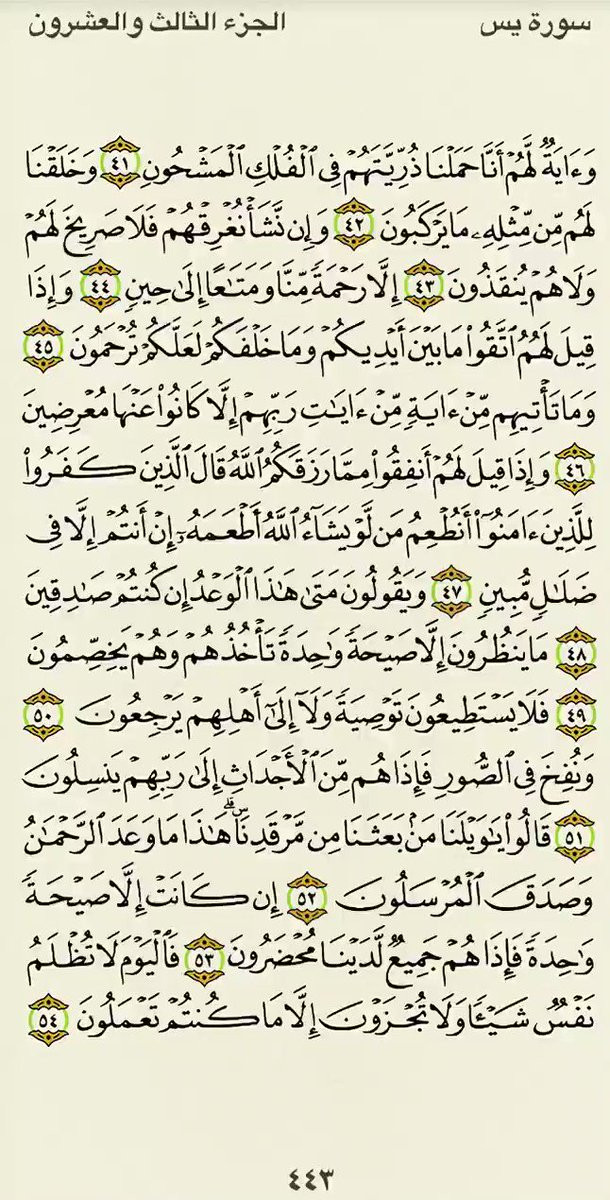 سورة يس الجزء الثالث والعشرون
وَءَايَةٌ لَّهُمْ أَنَّا حَمَلْنَا ذُرِّيَّتَهُمْ فِى ٱلْفُلْكِ ٱلْمَشْحُونِ ٤١ وَخَلَقْنَا
لَهُم مِّن مِّثْلِهِۦ مَا يَرْكَبُونَ ٤٢ وَإِن نَّشَأْ نُغْرِقْهُمْ فَلَا صَرِيخَ لَهُمْ
وَلَا هُمْ يُنقَذُونَ ٤٣ إِلَّا رَحْمَةً مِّنَّا وَمَتَٰعًا إِلَىٰ حِينٍ ٤٤ وَإِذَا
قِيلَ لَهُمُ ٱتَّقُوا۟ مَا بَيْنَ أَيْدِيكُمْ وَمَا خَلْفَكُمْ لَعَلَّكُمْ تُرْحَمُونَ ٤٥
وَمَا تَأْتِيهِم مِّنْ ءَايَةٍ مِّنْ ءَايَٰتِ رَبِّهِمْ إِلَّا كَانُوا۟ عَنْهَا مُعْرِضِينَ
٤٦ وَإِذَا قِيلَ لَهُمْ أَنفِقُوا۟ مِمَّا رَزَقَكُمُ ٱللَّهُ قَالَ ٱلَّذِينَ كَفَرُوا۟
لِلَّذِينَ ءَامَنُوٓا۟ أَنُطْعِمُ مَن لَّوْ يَشَآءُ ٱللَّهُ أَطْعَمَهُۥٓ إِنْ أَنتُمْ إِلَّا فِى
ضَلَٰلٍ مُّبِينٍ ٤٧ وَيَقُولُونَ مَتَىٰ هَٰذَا ٱلْوَعْدُ إِن كُنتُمْ صَٰدِقِينَ
٤٨ مَا يَنظُرُونَ إِلَّا صَيْحَةً وَٰحِدَةً تَأْخُذُهُمْ وَهُمْ يَخِصِّمُونَ
٤٩ فَلَا يَسْتَطِيعُونَ تَوْصِيَةً وَلَآ إِلَىٰٓ أَهْلِهِمْ يَرْجِعُونَ ٥٠
وَنُفِخَ فِى ٱلصُّورِ فَإِذَا هُم مِّنَ ٱلْأَجْدَاثِ إِلَىٰ رَبِّهِمْ يَنسِلُونَ
٥١ قَالُوا۟ يَٰوَيْلَنَا مَنۢ بَعَثَنَا مِن مَّرْقَدِنَا ۜ ۗ هَٰذَا مَا وَعَدَ ٱلرَّحْمَٰنُ
وَصَدَقَ ٱلْمُرْسَلُونَ ٥٢ إِن كَانَتْ إِلَّا صَيْحَةً
وَٰحِدَةً فَإِذَا هُمْ جَمِيعٌ لَّدَيْنَا مُحْضَرُونَ ٥٣ فَٱلْيَوْمَ لَا تُظْلَمُ
نَفْسٌ شَيْـًٔا وَلَا تُجْزَوْنَ إِلَّا مَا كُنتُمْ تَعْمَلُونَ ٥٤
٤٤٣